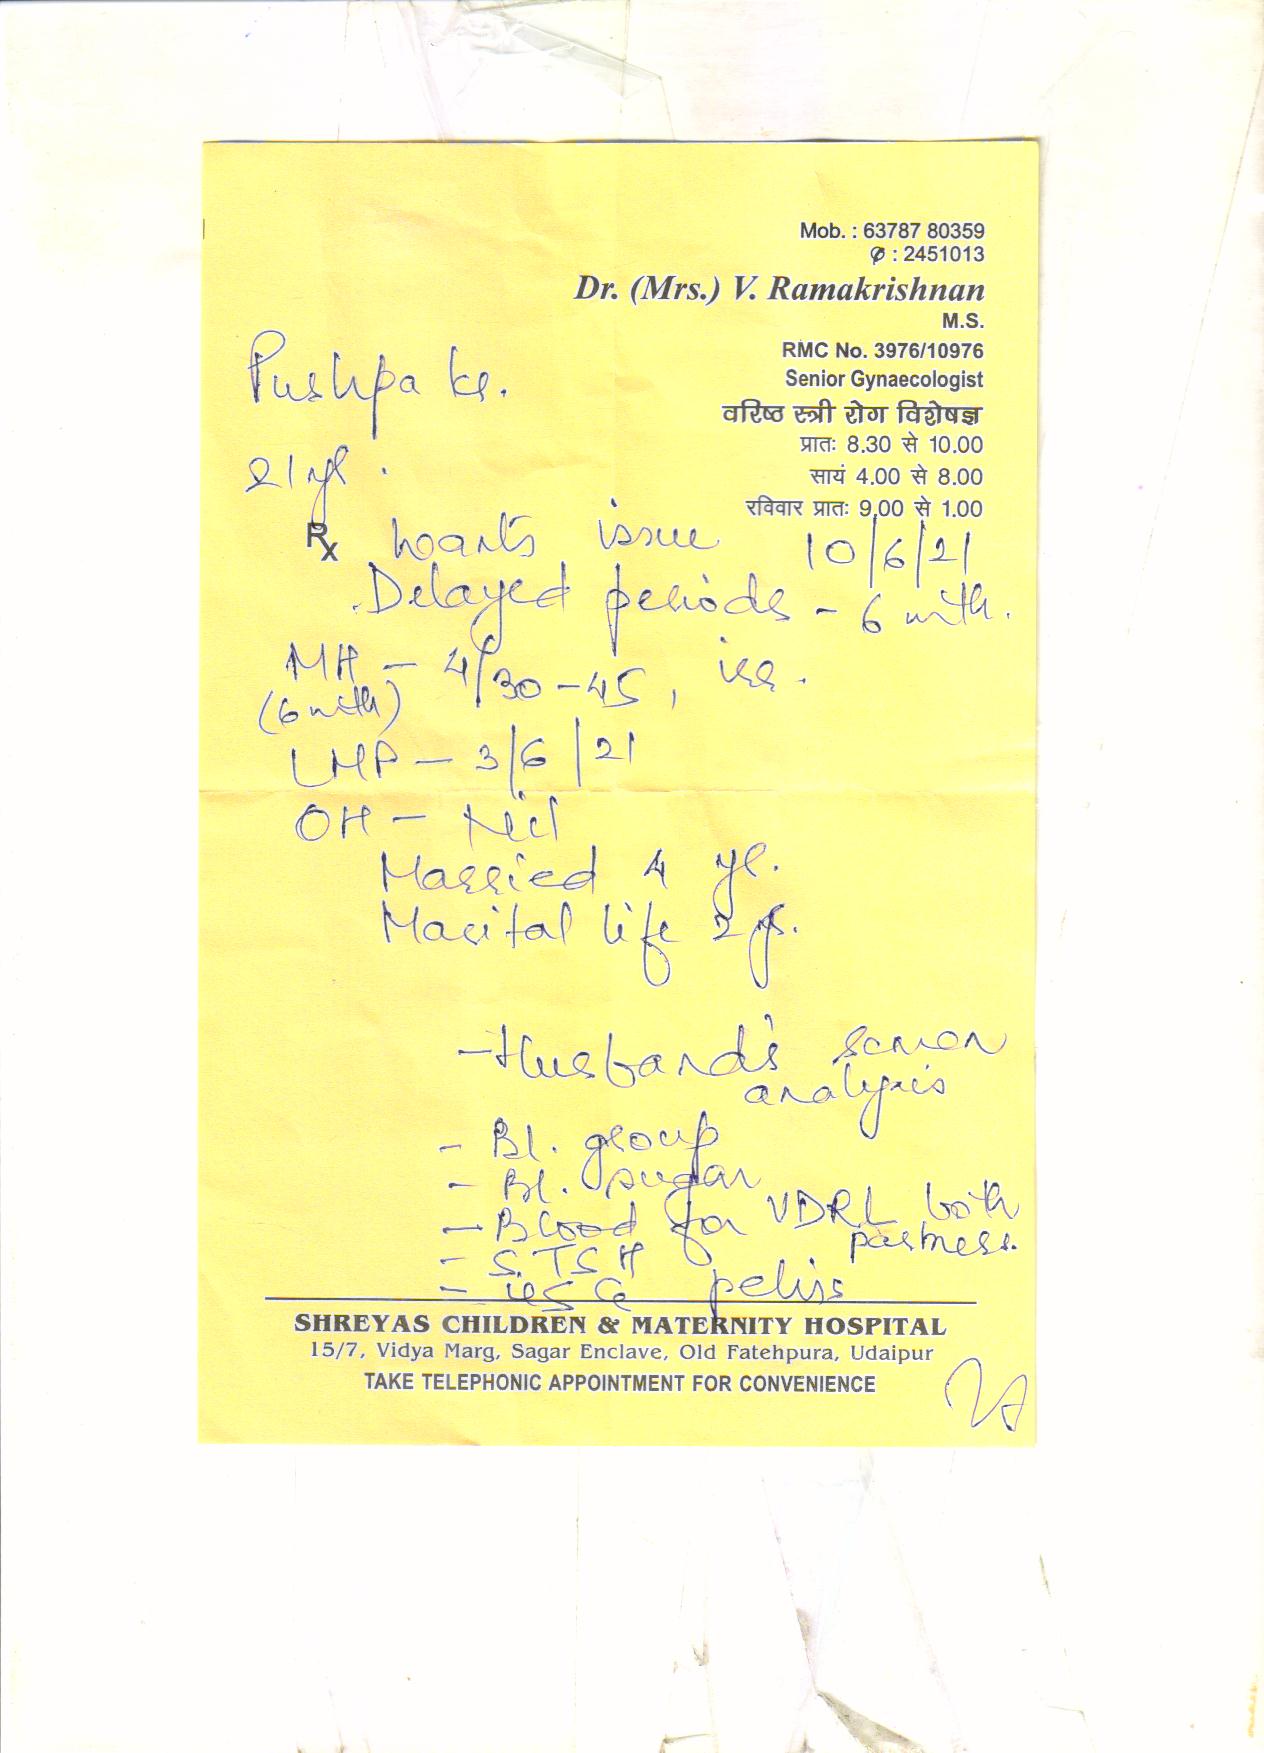 Mob. : 63787 80359
✆ : 2451013
Dr. (Mrs.) V. Ramakrishnan
M.S.
RMC No. 3976/10976
Senior Gynaecologist
वरिष्ठ स्त्री रोग विशेषज्ञ
प्रातः 8.30 से 10.00
सायं 4.00 से 8.00
रविवार प्रातः 9.00 से 1.00
Pushpa kr.
21 yr.
Rx wants issue 10/6/21
Delayed periods - 6 mth.
MH - 4/30-45, irr.
(6 mth)
LMP - 3/6/21
OH - Nil
Married 4 yr.
Marital life 2 yr.
- Husband's semen
analysis
- Bl. group
- Bl. sugar
- Blood for VDRL both
partners.
- S. TSH
- USG pelvis
SHREYAS CHILDREN & MATERNITY HOSPITAL
15/7, Vidya Marg, Sagar Enclave, Old Fatehpura, Udaipur
TAKE TELEPHONIC APPOINTMENT FOR CONVENIENCE